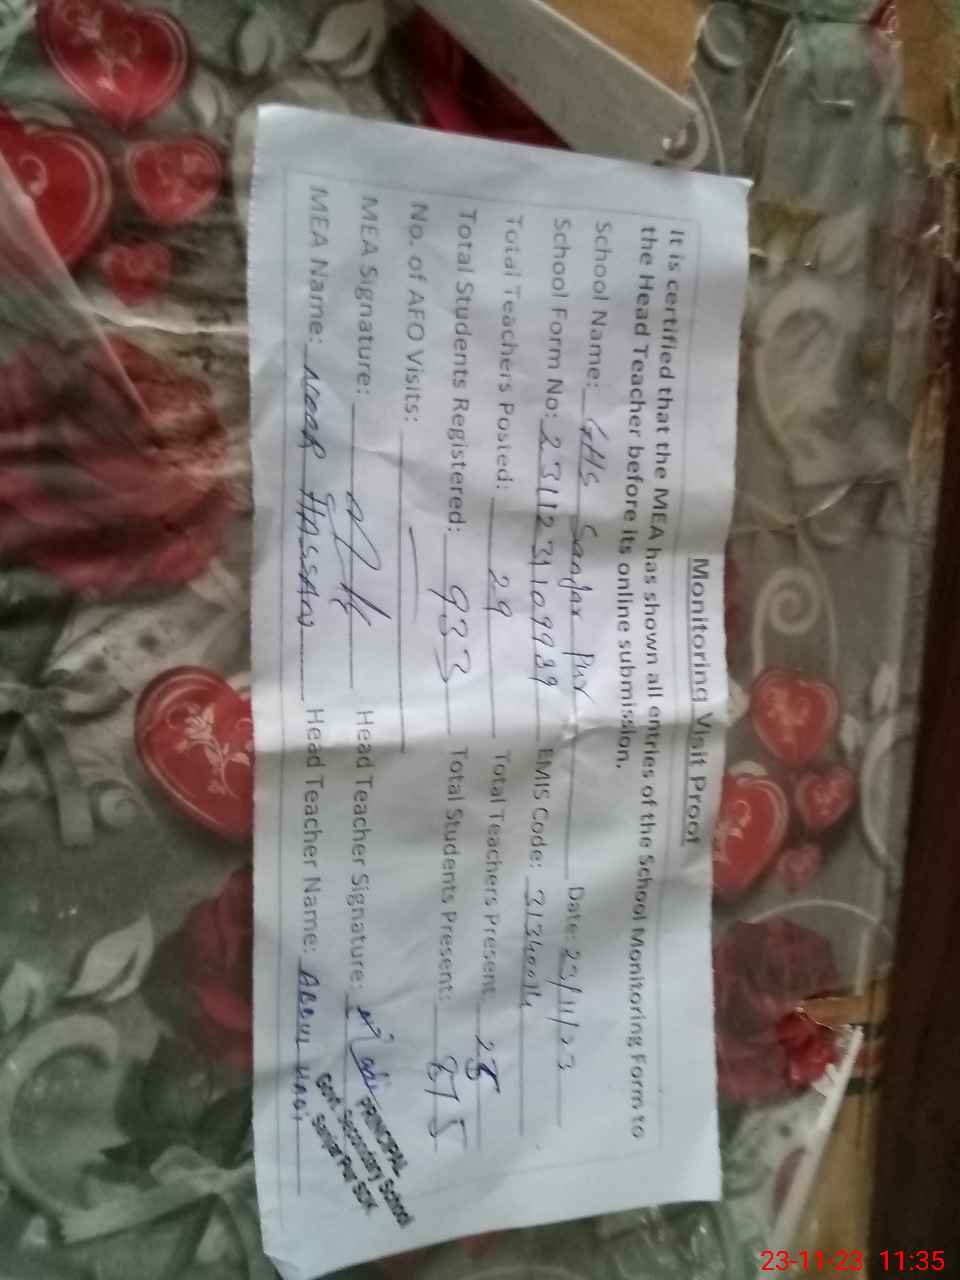 Monitoring Visit Proof
It is certified that the MEA has shown all entries of the School Monitoring Form to
the Head Teacher before its online submission.
School Name: GHS Sanjar Pur Date: 23/11/23
School Form No: 23112310999 EMIS Code: 31340014
Total Teachers Posted: 29 Total Teachers Present 28
Total Students Registered: 933 Total Students Present: 875
No. of AFO Visits: —
MEA Signature: Head Teacher Signature:
MEA Name: NOOR HASSAN Head Teacher Name: ABDUL HADI
PRINCIPAL
Govt. Secondary School
Sanjar Pur SDK
23-11-23 11:35